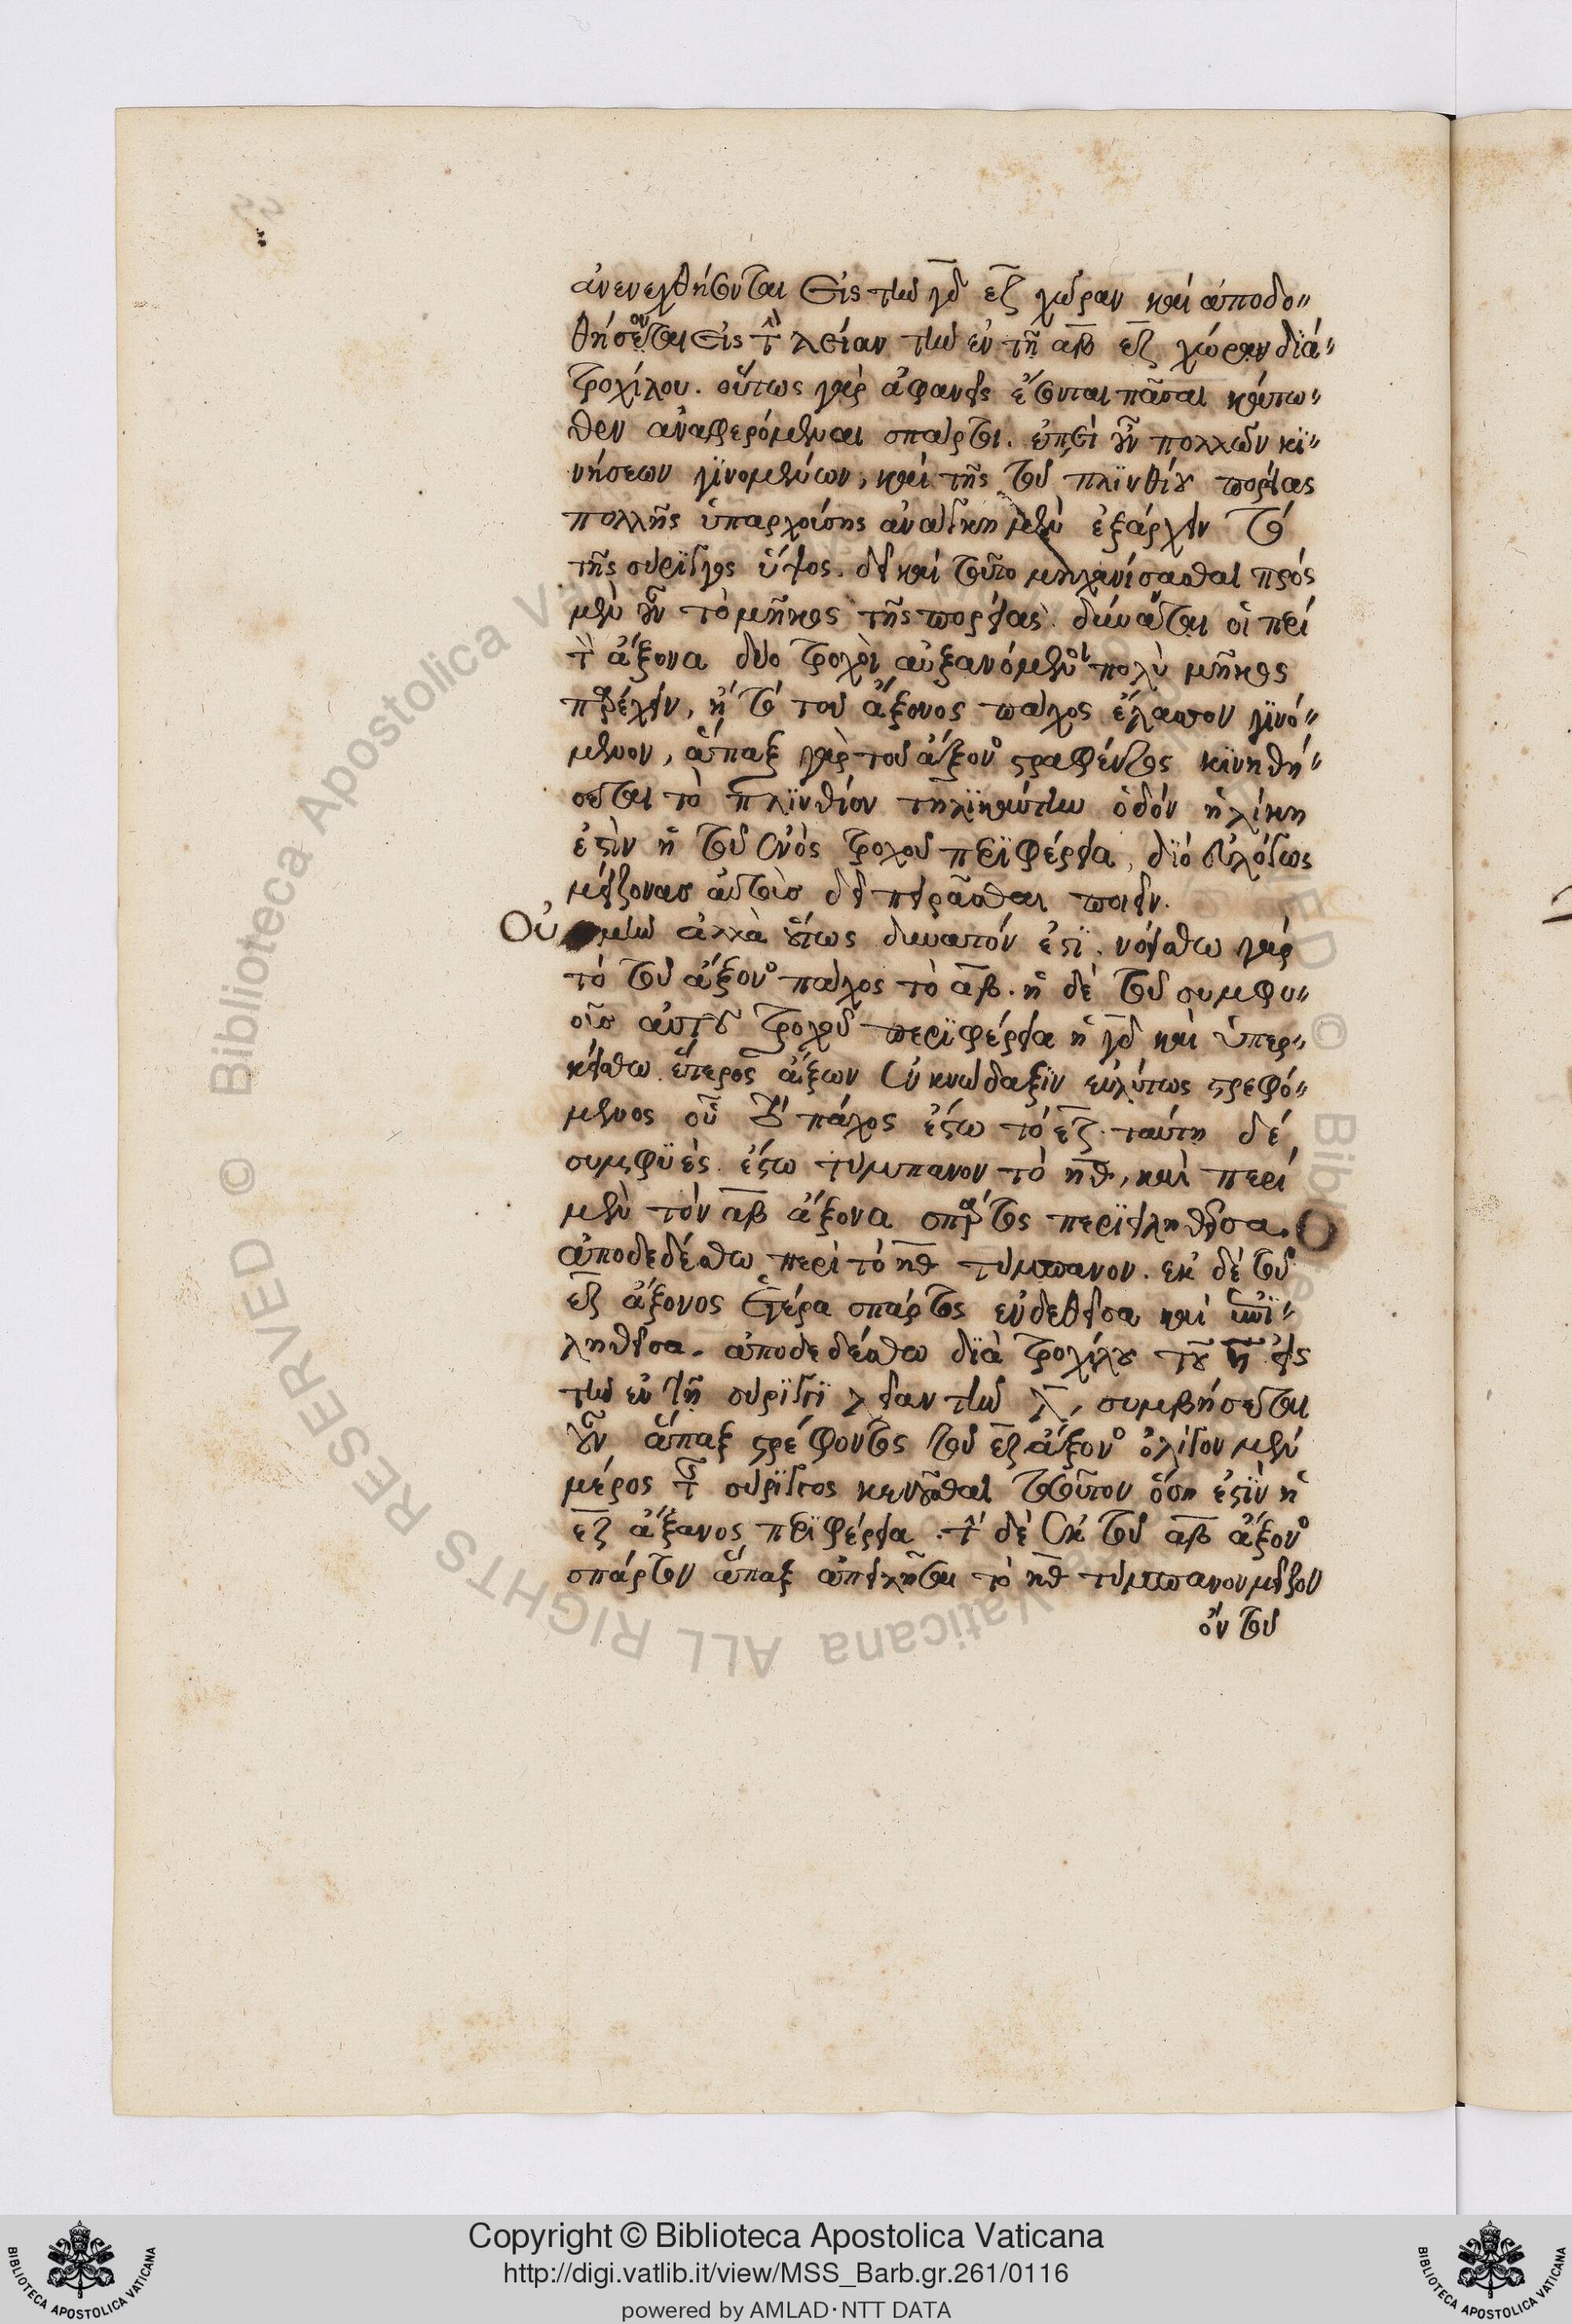 ἀνενεχθήσονται εἰς τὴν γδ εζ χώραν καὶ ἀποδο"
θήσονται εἰς τὴν λείαν τὴν ἐν τῇ αβ εζ χώραν διὰ"
τροχίλου. οὕτως γὰρ ἀφανεῖς ἔσονται πᾶσαι κάτω"
θεν ἀναφερόμεναι σπάρτοι. ἐπεὶ οὖν πολλῶν κϊ"
νήσεων γϊνομένων, καὶ τῆς τοῦ πλϊνθίου πορείας
πολλῆς ὑπαρχούσης ἀνάγκη μὲν ἐξάρχειν τὸ
τῆς σύριγγος ὕψος. δεῖ καὶ τοῦτο μηχανίσασθαι πρὸς
μὲν οὖν τὸ μῆκος τῆς πορείας. δύναται οἱ περὶ
τὸν ἄξονα δύο τροχοὶ αὐξανόμενοι πολὺ μῆκος
παρέχειν, ἢ τὸ τοῦ ἄξονος πάχος ἔλαττον γϊνό"
μενον, ἅπαξ γὰρ τοῦ ἄξονος στραφέντος κϊνηθή"
σεται τὸ πλϊνθίον τηλϊκαύτην ὁδόν ἡλίκη
ἐστὶν ἡ τοῦ ἑνὸς τροχοῦ περϊφέρεια, διὸ εὐλόγως
μείζονας αὐτοὺς δεῖ πειρᾶσθαι ποιεῖν.
Οὐ μὴν ἀλλὰ οὕτως δυνατόν ἐστϊ. νοείσθω γὰρ
τὸ τοῦ ἄξονος πάχος τὸ αβ. ἡ δὲ τοῦ συμφυ"
οῦς αὐτοῦ τροχοῦ περϊφέρεια ἡ γδ καὶ ὑπερ"
κείσθω ἕτερος ἄξων ἐν κνώδαξϊν εὐλύτως στρεφό"
μενος οὗ τὸ πάχος ἔστω τὸ εζ. ταύτη δέ
συμφϋὲς ἔστω τύμπανον τὸ ηθ, καὶ περὶ
μὲν τὸν αβ ἄξονα σπάρτος περϊειληθεῖσα.
ἀποδεδέσθω περὶ τὸ ηθ τύμπανον. ἐκ δὲ τοῦ
εζ ἄξονος ἑτέρα σπάρτος ἐνδεθεῖσα καὶ ἐπϊ"
ληθεῖσα. ἀποδεδέσθω διὰ τροχίλου τοῦ η εἰς
τὴν ἐν τῇ σύριγγϊ λείαν τὴν λ, συμβήσεται
οὖν ἅπαξ στρέφοντος τοῦ εζ ἄξονος ὀλίγον μὲν
μέρος τῆς σύριγγος κενοῦσθαι τοσοῦτον ὅση ἐστϊν ἡ
εζ ἄξανος περϊφέρεια. τὴν δὲ ἐκ τοῦ αβ ἄξονος
σπάρτον ἅπαξ ἀπειλῆσαι τὸ ηθ τύμπανον μεῖζον
ὂν τοῦ
Copyright © Biblioteca Apostolica Vaticana
http://digi.vatlib.it/view/MSS_Barb.gr.261/0116
powered by AMLAD·NTT DATA